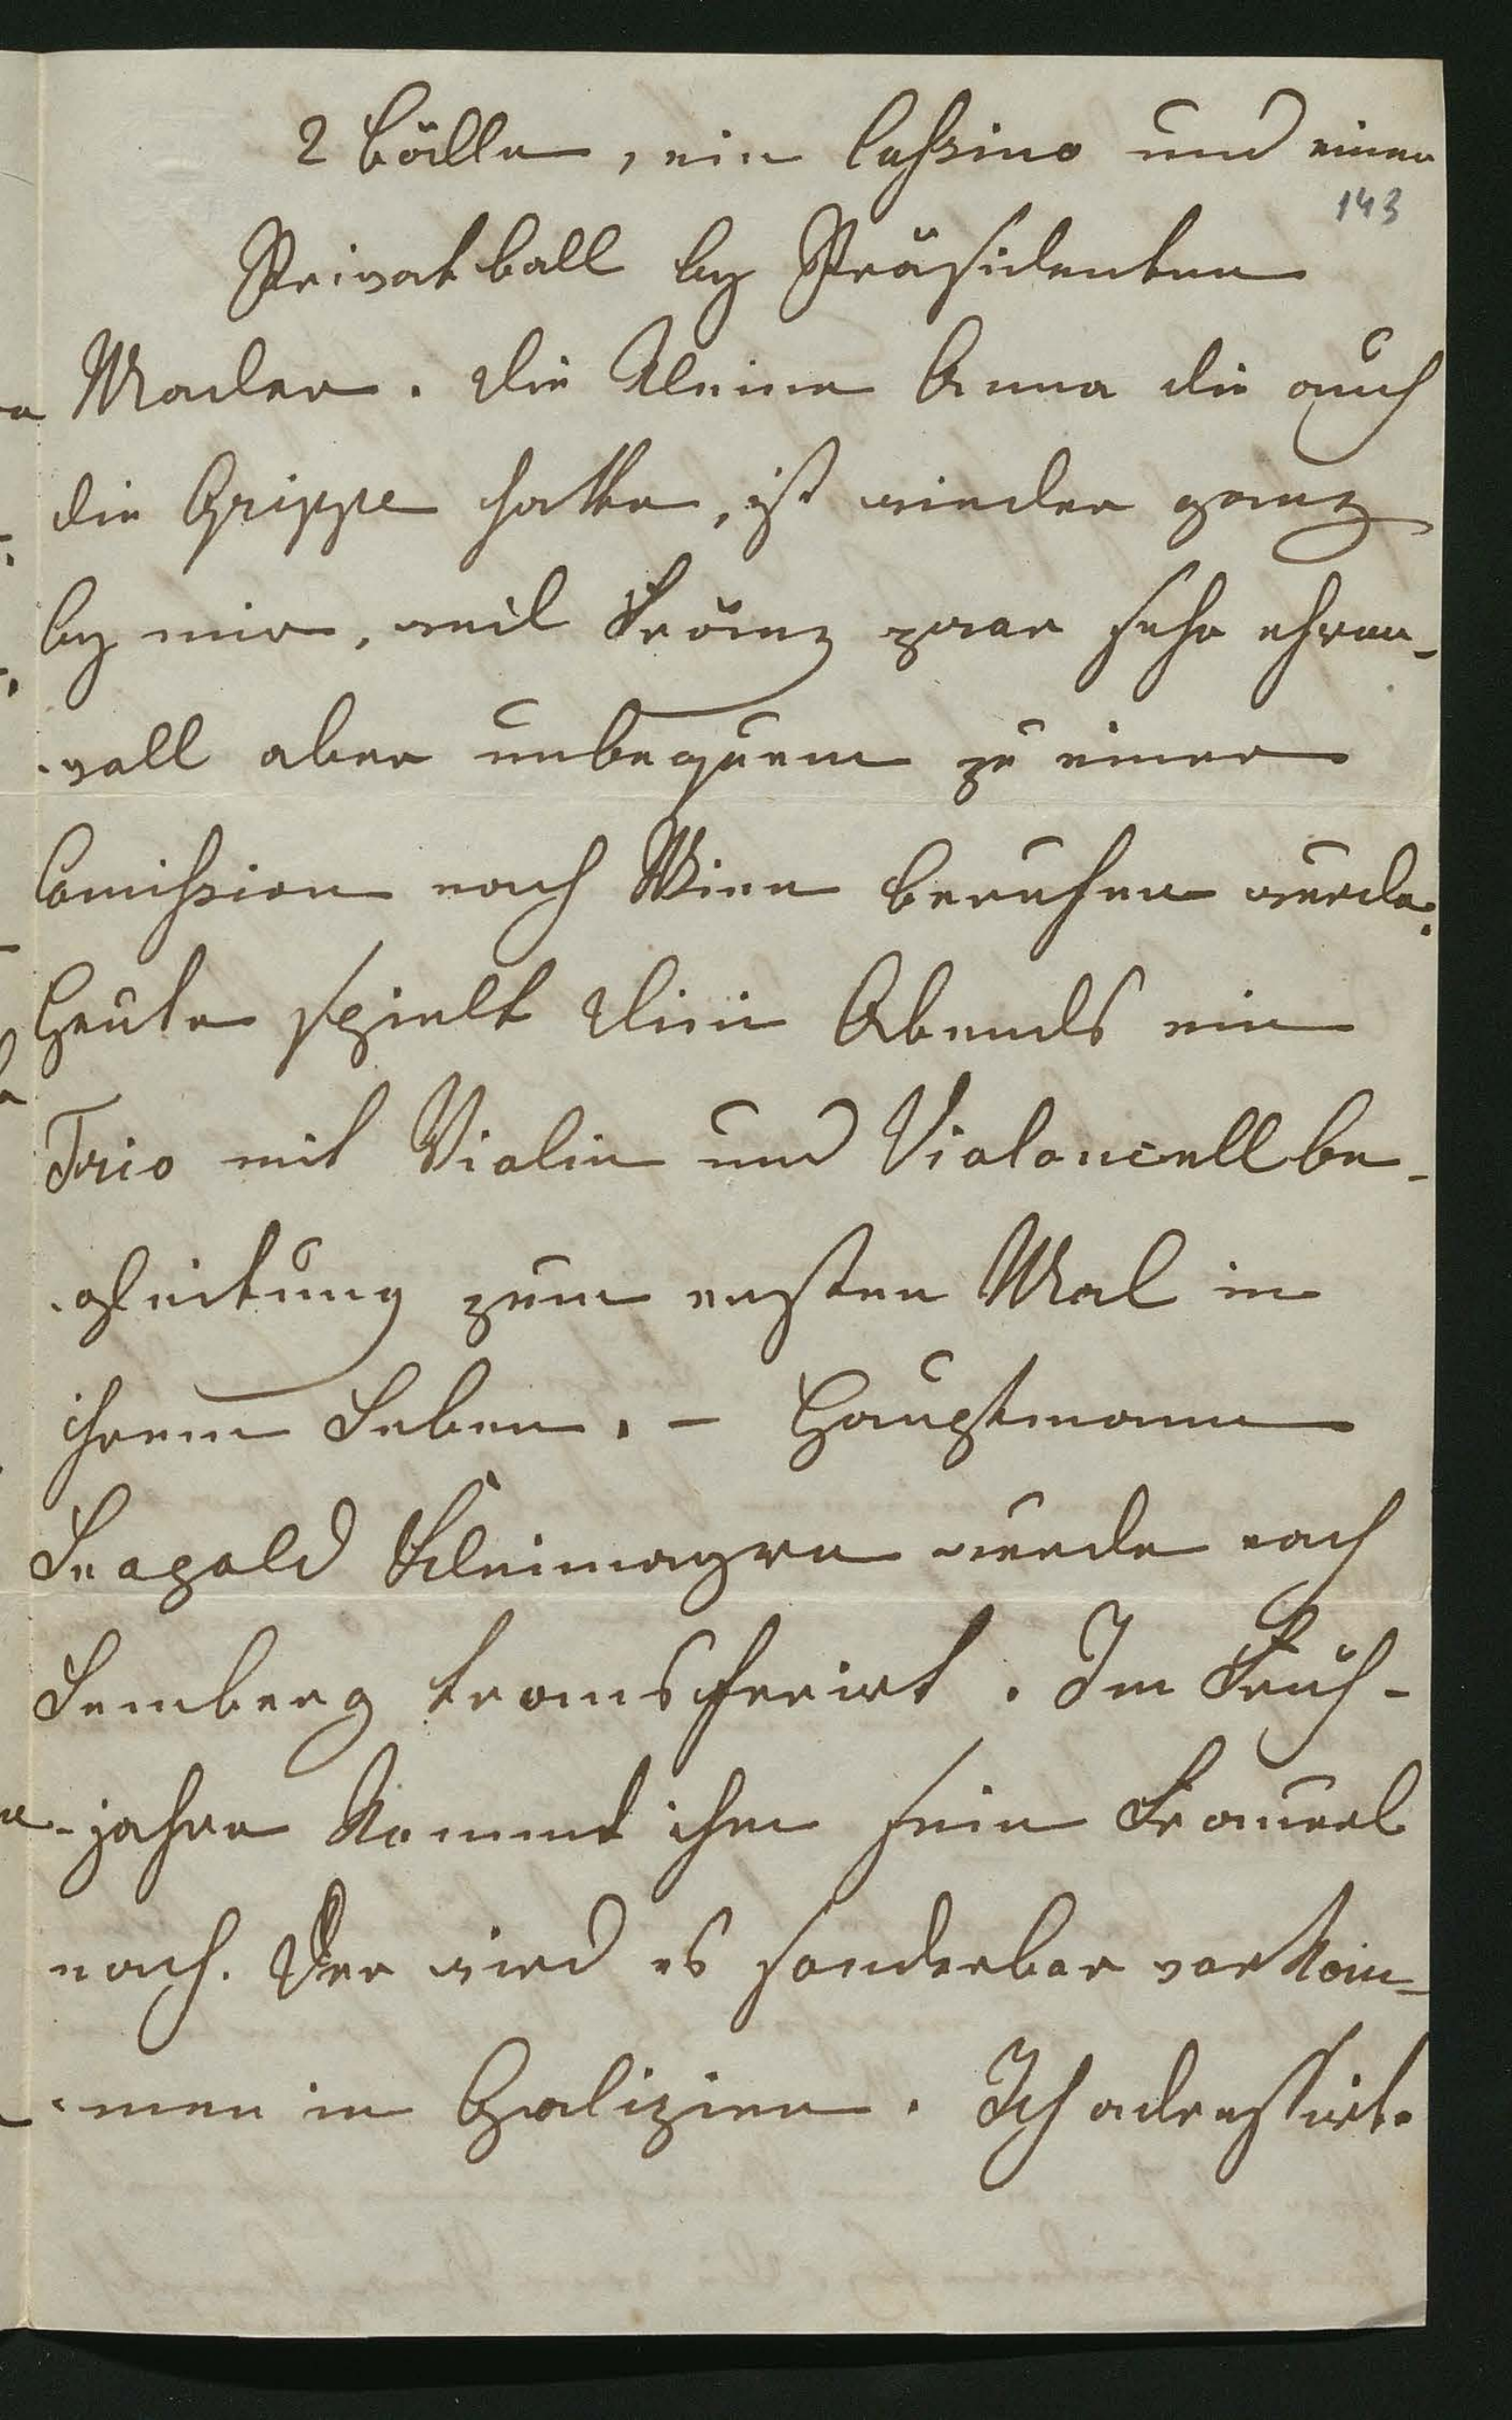 2 Bälle, ein Cassino und einen
143
Privatball by Präsidenten
Mader. Die kleine Anna die auch
die Grippe hatte, ist wieder ganz
by mir, weil Fränz zwar sehr ehren-
-voll aber unbequem zu einer
Comission nach Wien berufen wurde.
Heute spielt Vivi Abends ein
Trio mit Violin und Violoncell be-
-gleitung zum ersten Mal in
ihrem Leben. – Hauptmann
Leopold Kleimayrn wurde nach
Lemberg transferirt. Im Früh-
-jahre kommt ihm sein Frauerl
nach. Der wird es sonderbar vorkom-
-men in Galizien. Ich adressirte